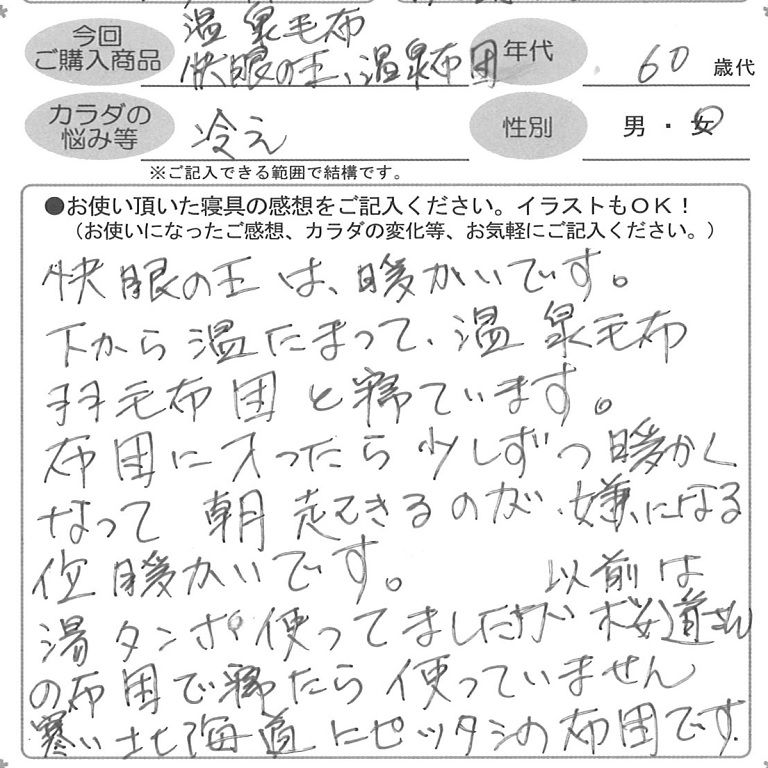 今回
ご購入商品
温泉毛布
快眠の王、温泉布団
年代
60 歳代
カラダの
悩み等
冷え
性別
男・女
※ご記入できる範囲で結構です。
●お使い頂いた寝具の感想をご記入ください。イラストもOK！
（お使いになったご感想、カラダの変化等、お気軽にご記入ください。）
快眠の王は、暖かいです。
下から温たまって、温泉毛布
羽毛布団と寝ています。
布団に入ったら少しずつ暖かく
なって朝起きるのが嫌になる
位暖かいです。 以前は
湯タンポ使ってましたが桜道さん
の布団で寝たら使っていません
寒い北海道にピッタシの布団です.